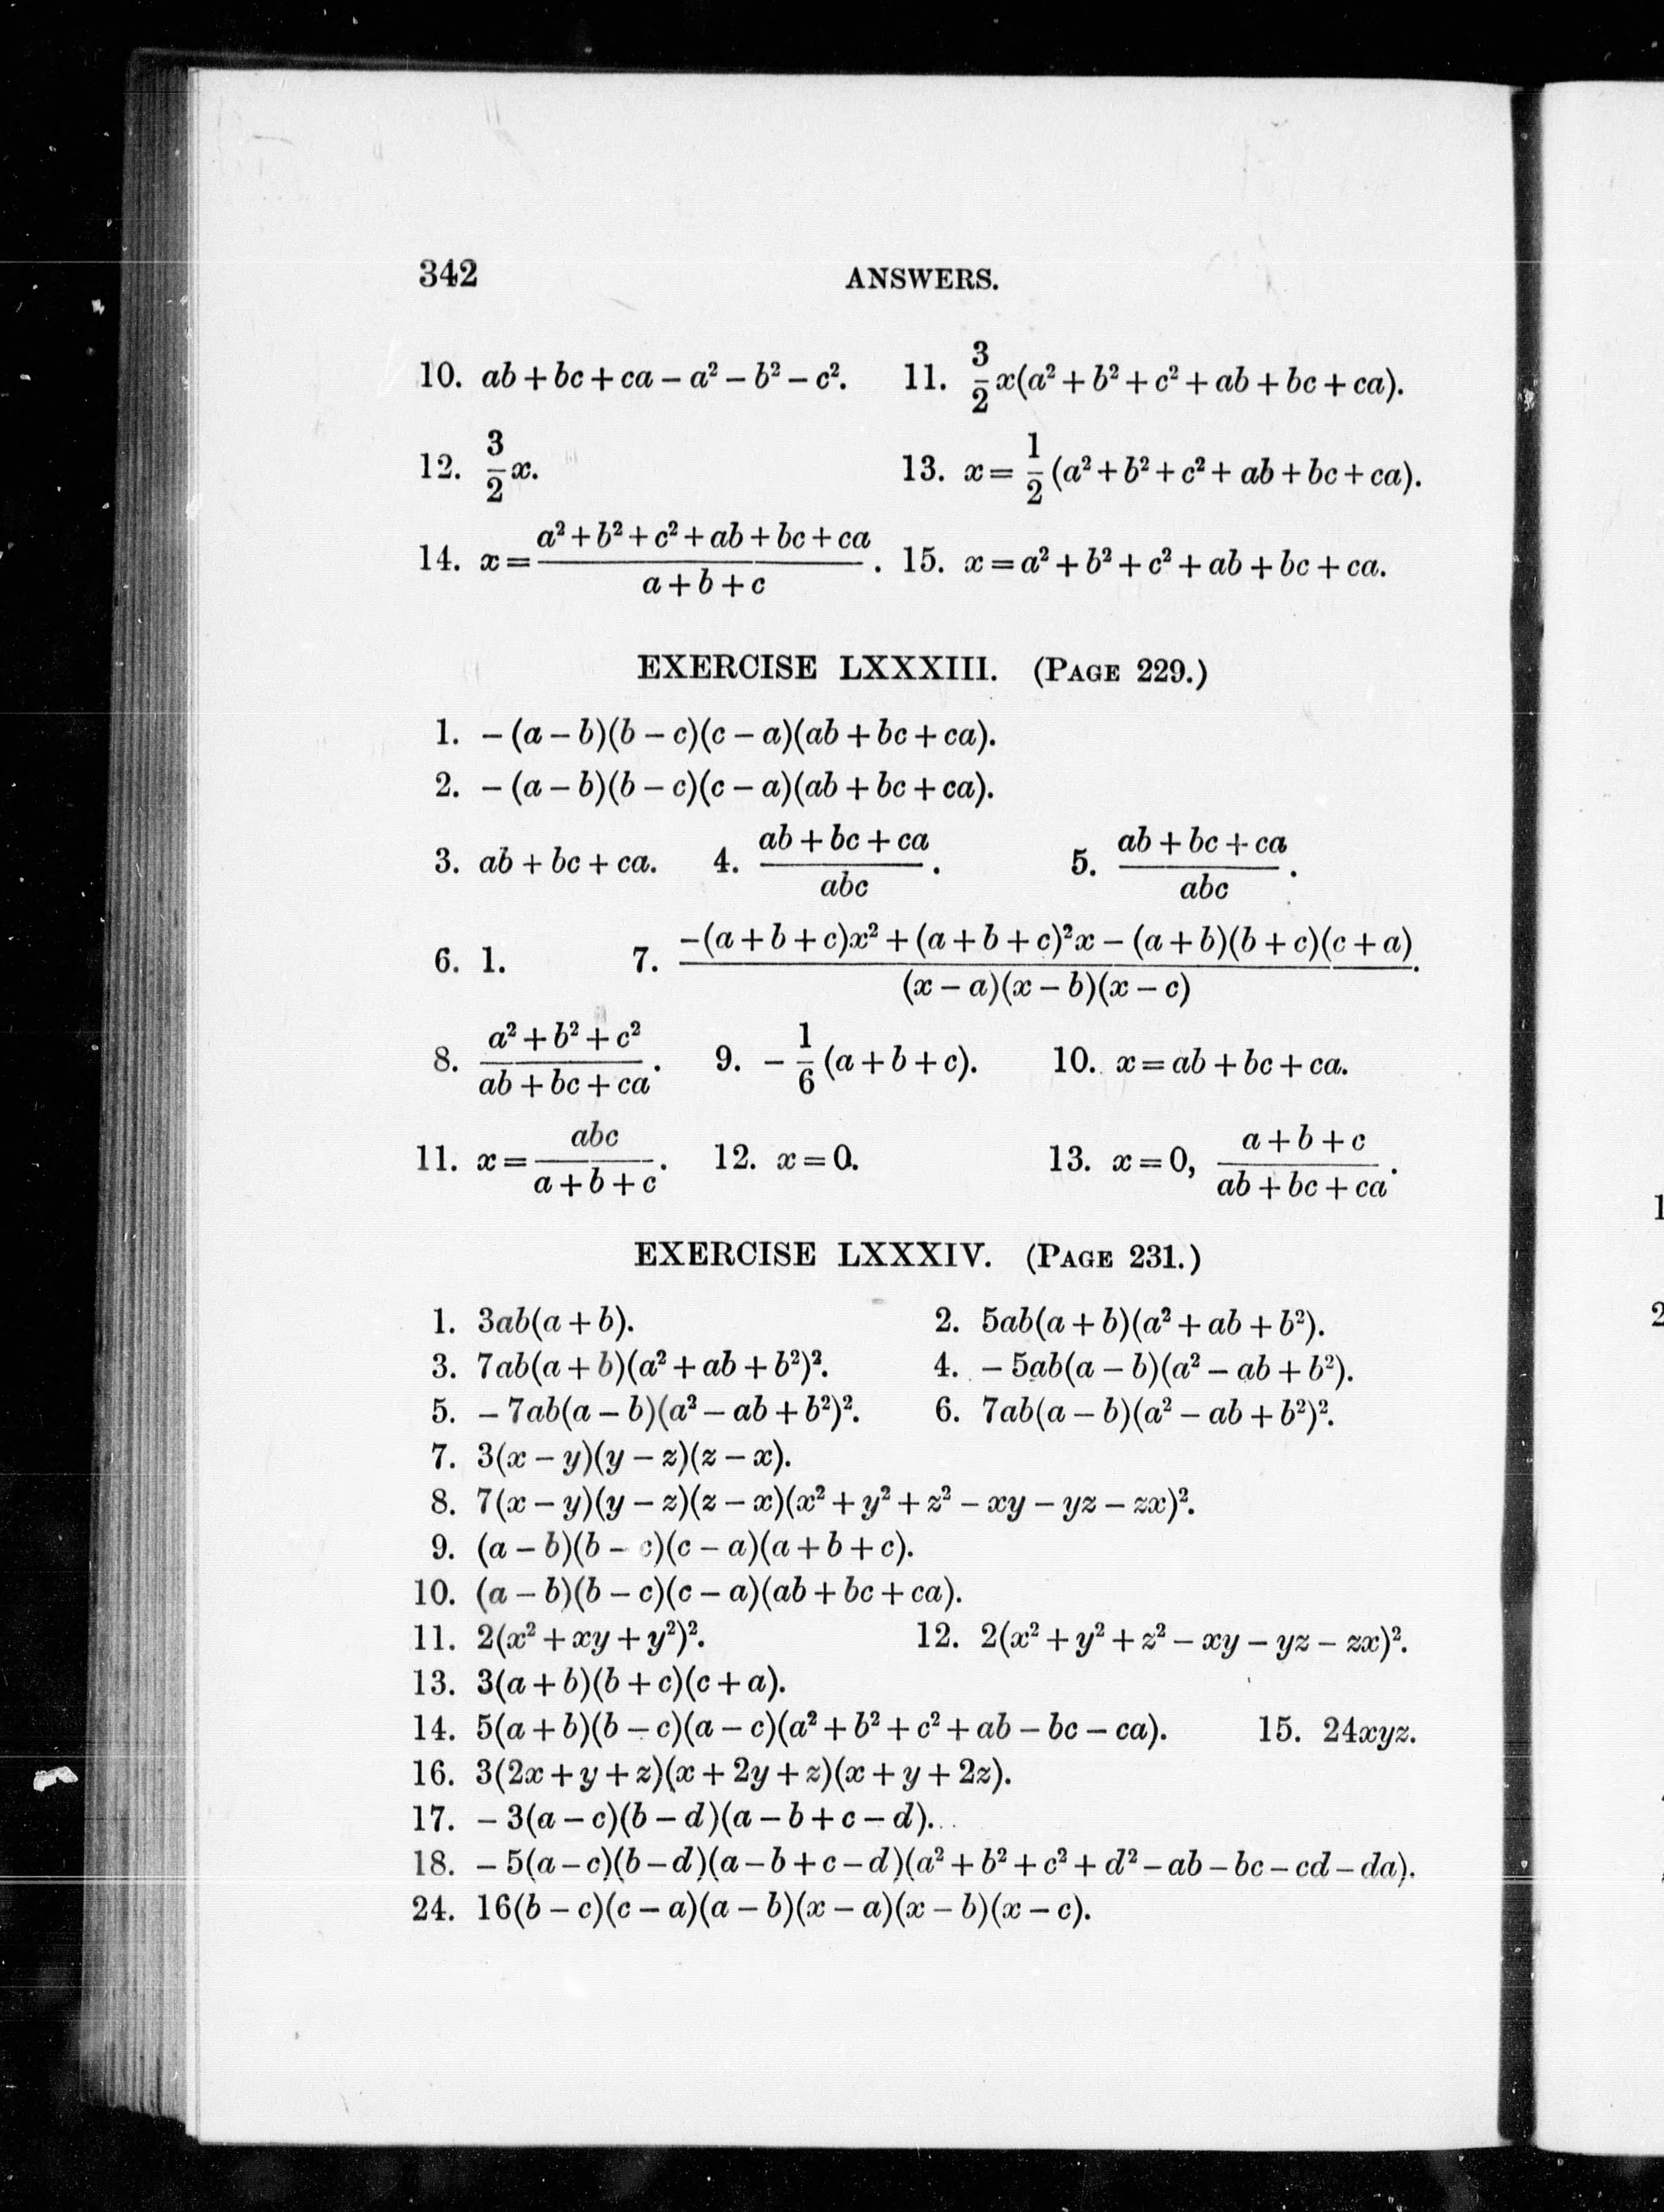 342 ANSWERS.
10. ab + bc + ca − a² − b² − c². 11. 3/2 x(a² + b² + c² + ab + bc + ca).
12. 3/2 x. 13. x = 1/2 (a² + b² + c² + ab + bc + ca).
14. x = (a² + b² + c² + ab + bc + ca)/(a + b + c). 15. x = a² + b² + c² + ab + bc + ca.
EXERCISE LXXXIII. (PAGE 229.)
1. − (a − b)(b − c)(c − a)(ab + bc + ca).
2. − (a − b)(b − c)(c − a)(ab + bc + ca).
3. ab + bc + ca. 4. (ab + bc + ca)/abc. 5. (ab + bc + ca)/abc.
6. 1. 7. (−(a + b + c)x² + (a + b + c)²x − (a + b)(b + c)(c + a))/((x − a)(x − b)(x − c)).
8. (a² + b² + c²)/(ab + bc + ca). 9. − 1/6 (a + b + c). 10. x = ab + bc + ca.
11. x = abc/(a + b + c). 12. x = 0. 13. x = 0, (a + b + c)/(ab + bc + ca).
EXERCISE LXXXIV. (PAGE 231.)
1. 3ab(a + b). 2. 5ab(a + b)(a² + ab + b²).
3. 7ab(a + b)(a² + ab + b²)². 4. − 5ab(a − b)(a² − ab + b²).
5. − 7ab(a − b)(a² − ab + b²)². 6. 7ab(a − b)(a² − ab + b²)².
7. 3(x − y)(y − z)(z − x).
8. 7(x − y)(y − z)(z − x)(x² + y² + z² − xy − yz − zx)².
9. (a − b)(b − c)(c − a)(a + b + c).
10. (a − b)(b − c)(c − a)(ab + bc + ca).
11. 2(x² + xy + y²)². 12. 2(x² + y² + z² − xy − yz − zx)².
13. 3(a + b)(b + c)(c + a).
14. 5(a + b)(b − c)(a − c)(a² + b² + c² + ab − bc − ca). 15. 24xyz.
16. 3(2x + y + z)(x + 2y + z)(x + y + 2z).
17. − 3(a − c)(b − d)(a − b + c − d).
18. − 5(a − c)(b − d)(a − b + c − d)(a² + b² + c² + d² − ab − bc − cd − da).
24. 16(b − c)(c − a)(a − b)(x − a)(x − b)(x − c).
1
2